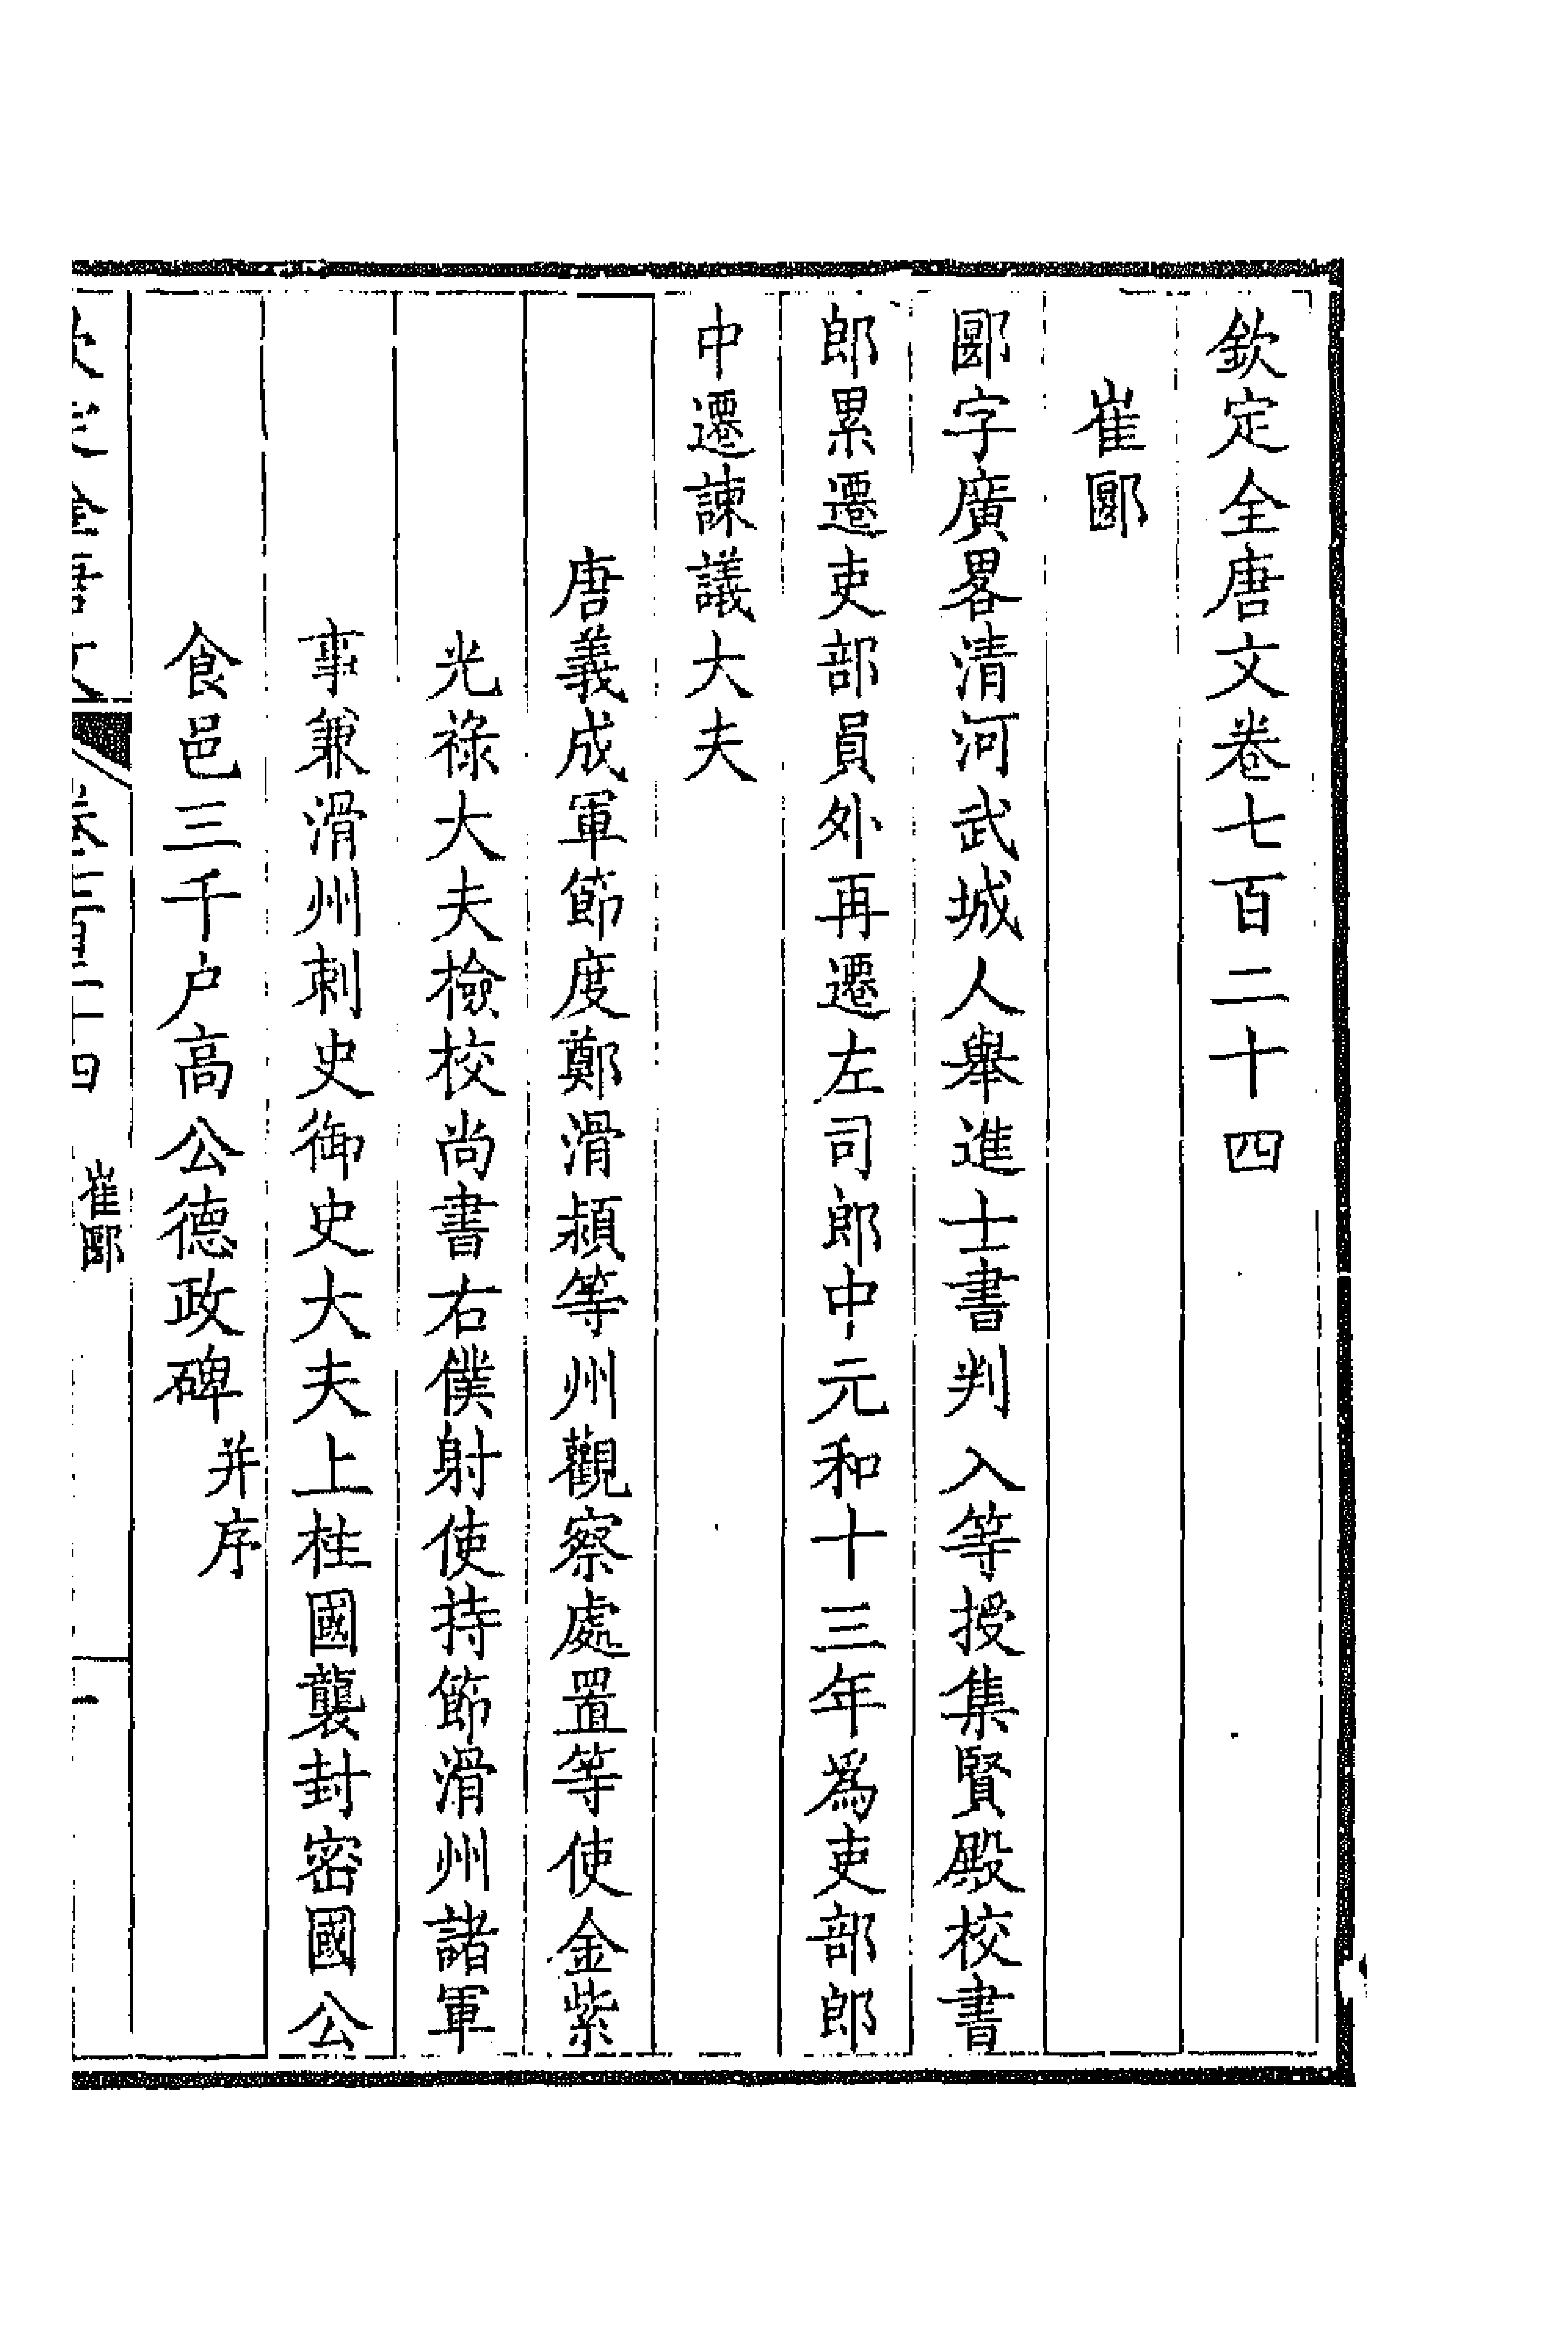 欽定全唐文卷七百二十四
崔郾
郾字廣畧清河武城人舉進士書判入等授集賢殿校書
郎累遷吏部員外再遷左司郎中元和十三年為吏部郎
中遷諫議大夫
唐義成軍節度鄭滑潁等州觀察處置等使金紫
光祿大夫檢校尚書右僕射使持節滑州諸軍
事兼滑州刺史御史大夫上柱國襲封密國公
食邑三千户高公德政碑并序
崔郾
一